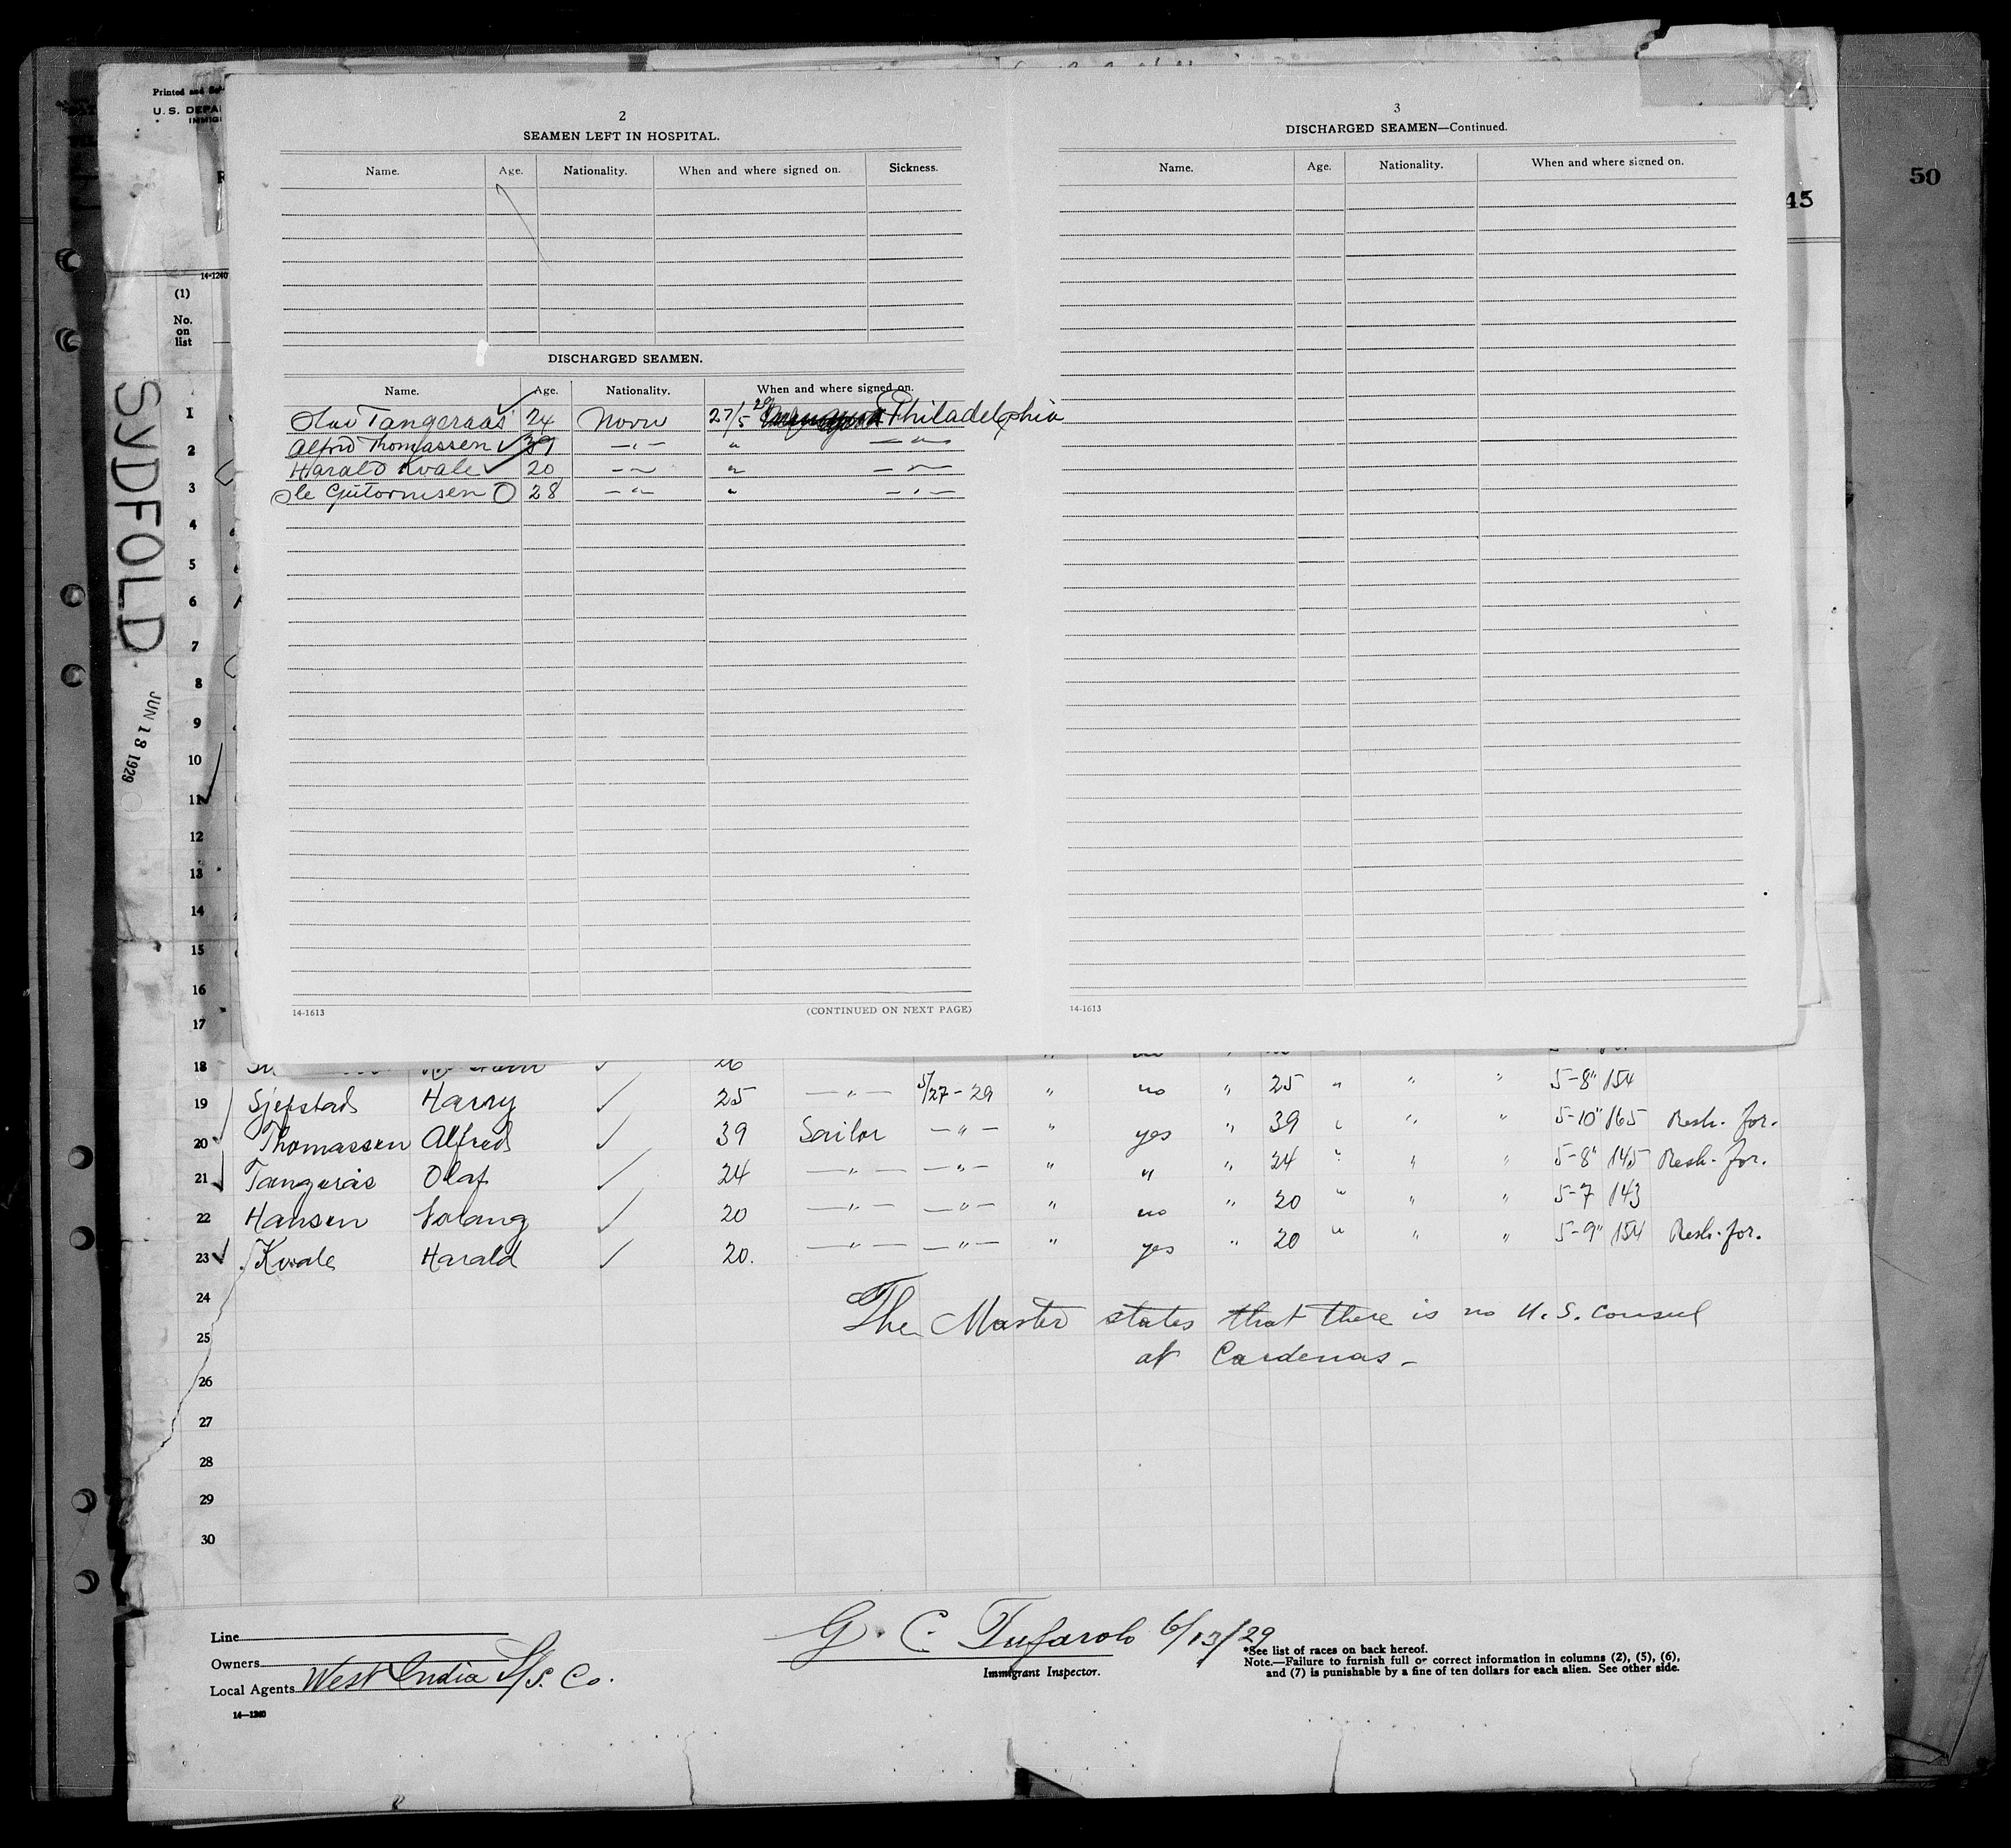 Printed and
U.S. DEPA
IMMIG
14-1240
(1)
No.
on
list
SYDFOLD
JUN 18 1929
50
45
2
SEAMEN LEFT IN HOSPITAL.
Name. Age. Nationality. When and where signed on. Sickness.
DISCHARGED SEAMEN.
Name. Age. Nationality. When and where signed on.
Olav Tangeraas 24 Norw 27/5 29 Philadelphia
Alfred Thomassen 39 —"— " —"—
Harald Kvale 20 —"— " —"—
Ole Gutormsen O 28 —"— " —"—
14-1613 (CONTINUED ON NEXT PAGE)
3
DISCHARGED SEAMEN—Continued.
Name. Age. Nationality. When and where signed on.
14-1613
1
2
3
4
5
6
7
8
9
10
11
12
13
14
15
16
17
18 26
19 Sjefstad Harry 25 —"— 5/27-29 " no " 25 " " " 5-8" 154
20 Thomassen Alfred 39 Sailor —"— " yes " 39 " " " 5-10" 165 Resh. for.
21 Tangerås Olaf 24 —"— —"— " " " 24 " " " 5-8" 145 Resh. for.
22 Hansen 20 —"— —"— " no " 20 " " " 5-7 143
23 Kvale Harald 20. —"— —"— " yes " 20 " " " 5-9" 154 Resh. for.
24
The Master states that there is no U.S. Consul
25
at Cardenas -
26
27
28
29
30
Line
Owners
Local Agents West India S/S. Co.
14—1240
G. C. Tufarolo 6/13/29
Immigrant Inspector.
*See list of races on back hereof.
Note.—Failure to furnish full or correct information in columns (2), (5), (6),
and (7) is punishable by a fine of ten dollars for each alien. See other side.